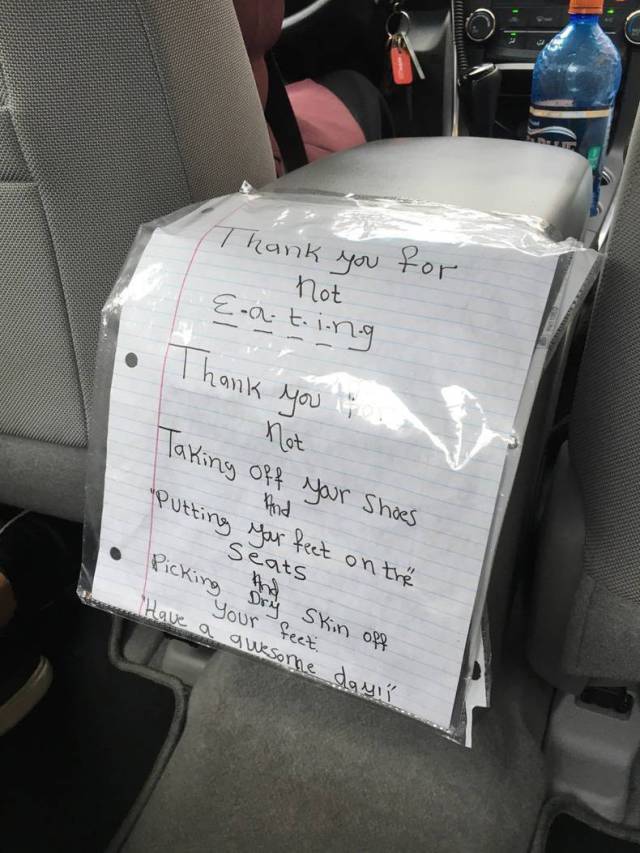 Thank you for
Not
E-a-t-i-n-g
Thank you for
Not
Taking off your shoes
And
"Putting your feet on the"
Seats
And
Picking Dry skin off
Your feet.
"Have a awesome day!!"